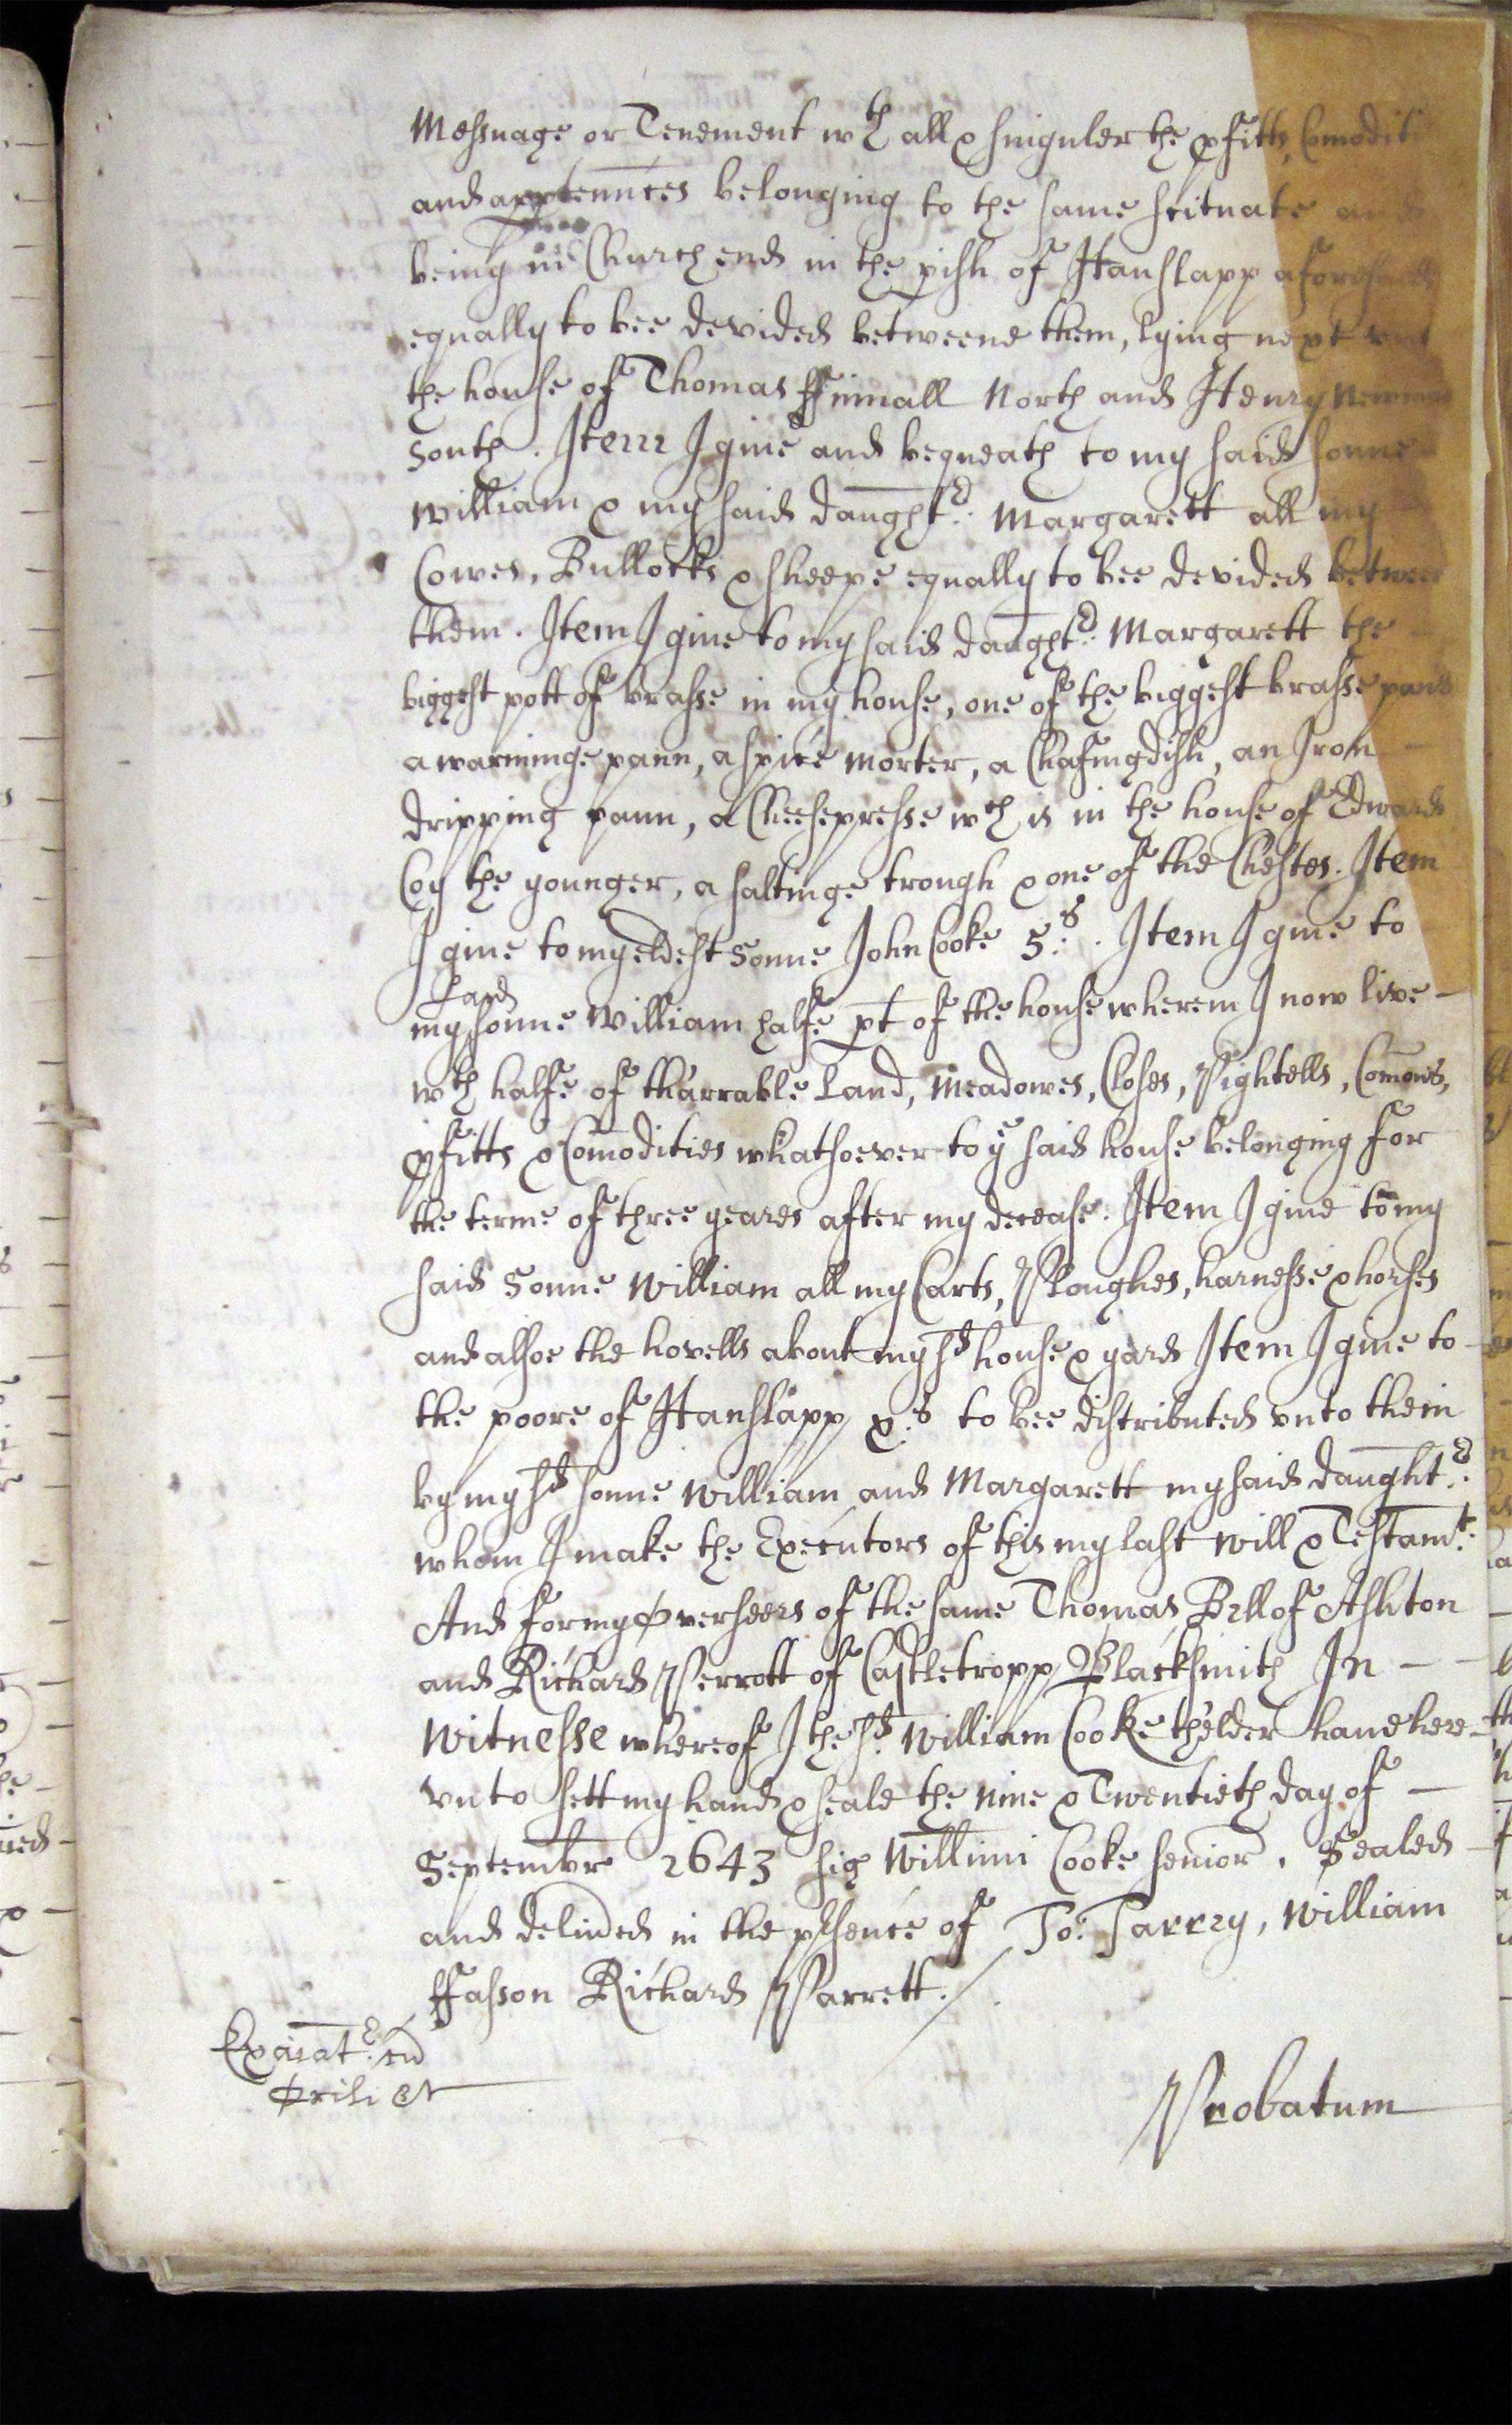 Messuage or Tenement wth all & singuler the pfitts, Comodit
and apptennces belonging to the same scituate and
being in Church end in the pish of Hanslapp aforesaid
equally to bee devided betweene them, lying next unt
the house of Thomas ffinnall North and Henry Newman
South. Item I give and bequeath to my said sonne
William & my said daught: Margarett all my
Cowes, Bullocks & sheepe equally to bee devided betwee
them. Item I give to my said daught: Margarett the
biggest pott of brasse in my house, one of the biggest brasse panns
a warminge pann, a spice morter, a Chafingdish, an Iron —
dripping pann, a Cheesepresse wch is in the house of Edward
Coy the younger, a saltinge trough & one of the Chestes. Item
I give to my eldest Sonne John Cooke 5:s. Item I give to
said
my sonne William halfe pt of the house wherein I now live —
wth halfe of th'arrable Land, Meadowes, Closes, Pightells, Comons,
pfitts & Comodities whatsoever to ye said house belonging for
the terme of three yeares after my decease. Item I give to my
said Sonne William all my Carts, Ploughes, harnesse & horses
and alsoe the hovells about my sd house & yard Item I give to
the poore of Hanslapp x:s to bee distributed unto them
by my sd sonne William and Margarett my said daught:
whom I make the Executors of this my last will & Testamt:
And for my overseers of the same Thomas Bell of Ashton
and Richard Perrott of Castletropp Blacksmith In — —
Witnesse whereof I the sd: William Cooke th'elder have here
unto sett my hand & seale the nine & Twentieth day of —
Septembr 1643 sig Willimi Cooke senior. Sealed
and delivded in the psence of Jo: Tarrey, William
ffasson Richard Parrett.
Exaiat: cu
Probatum